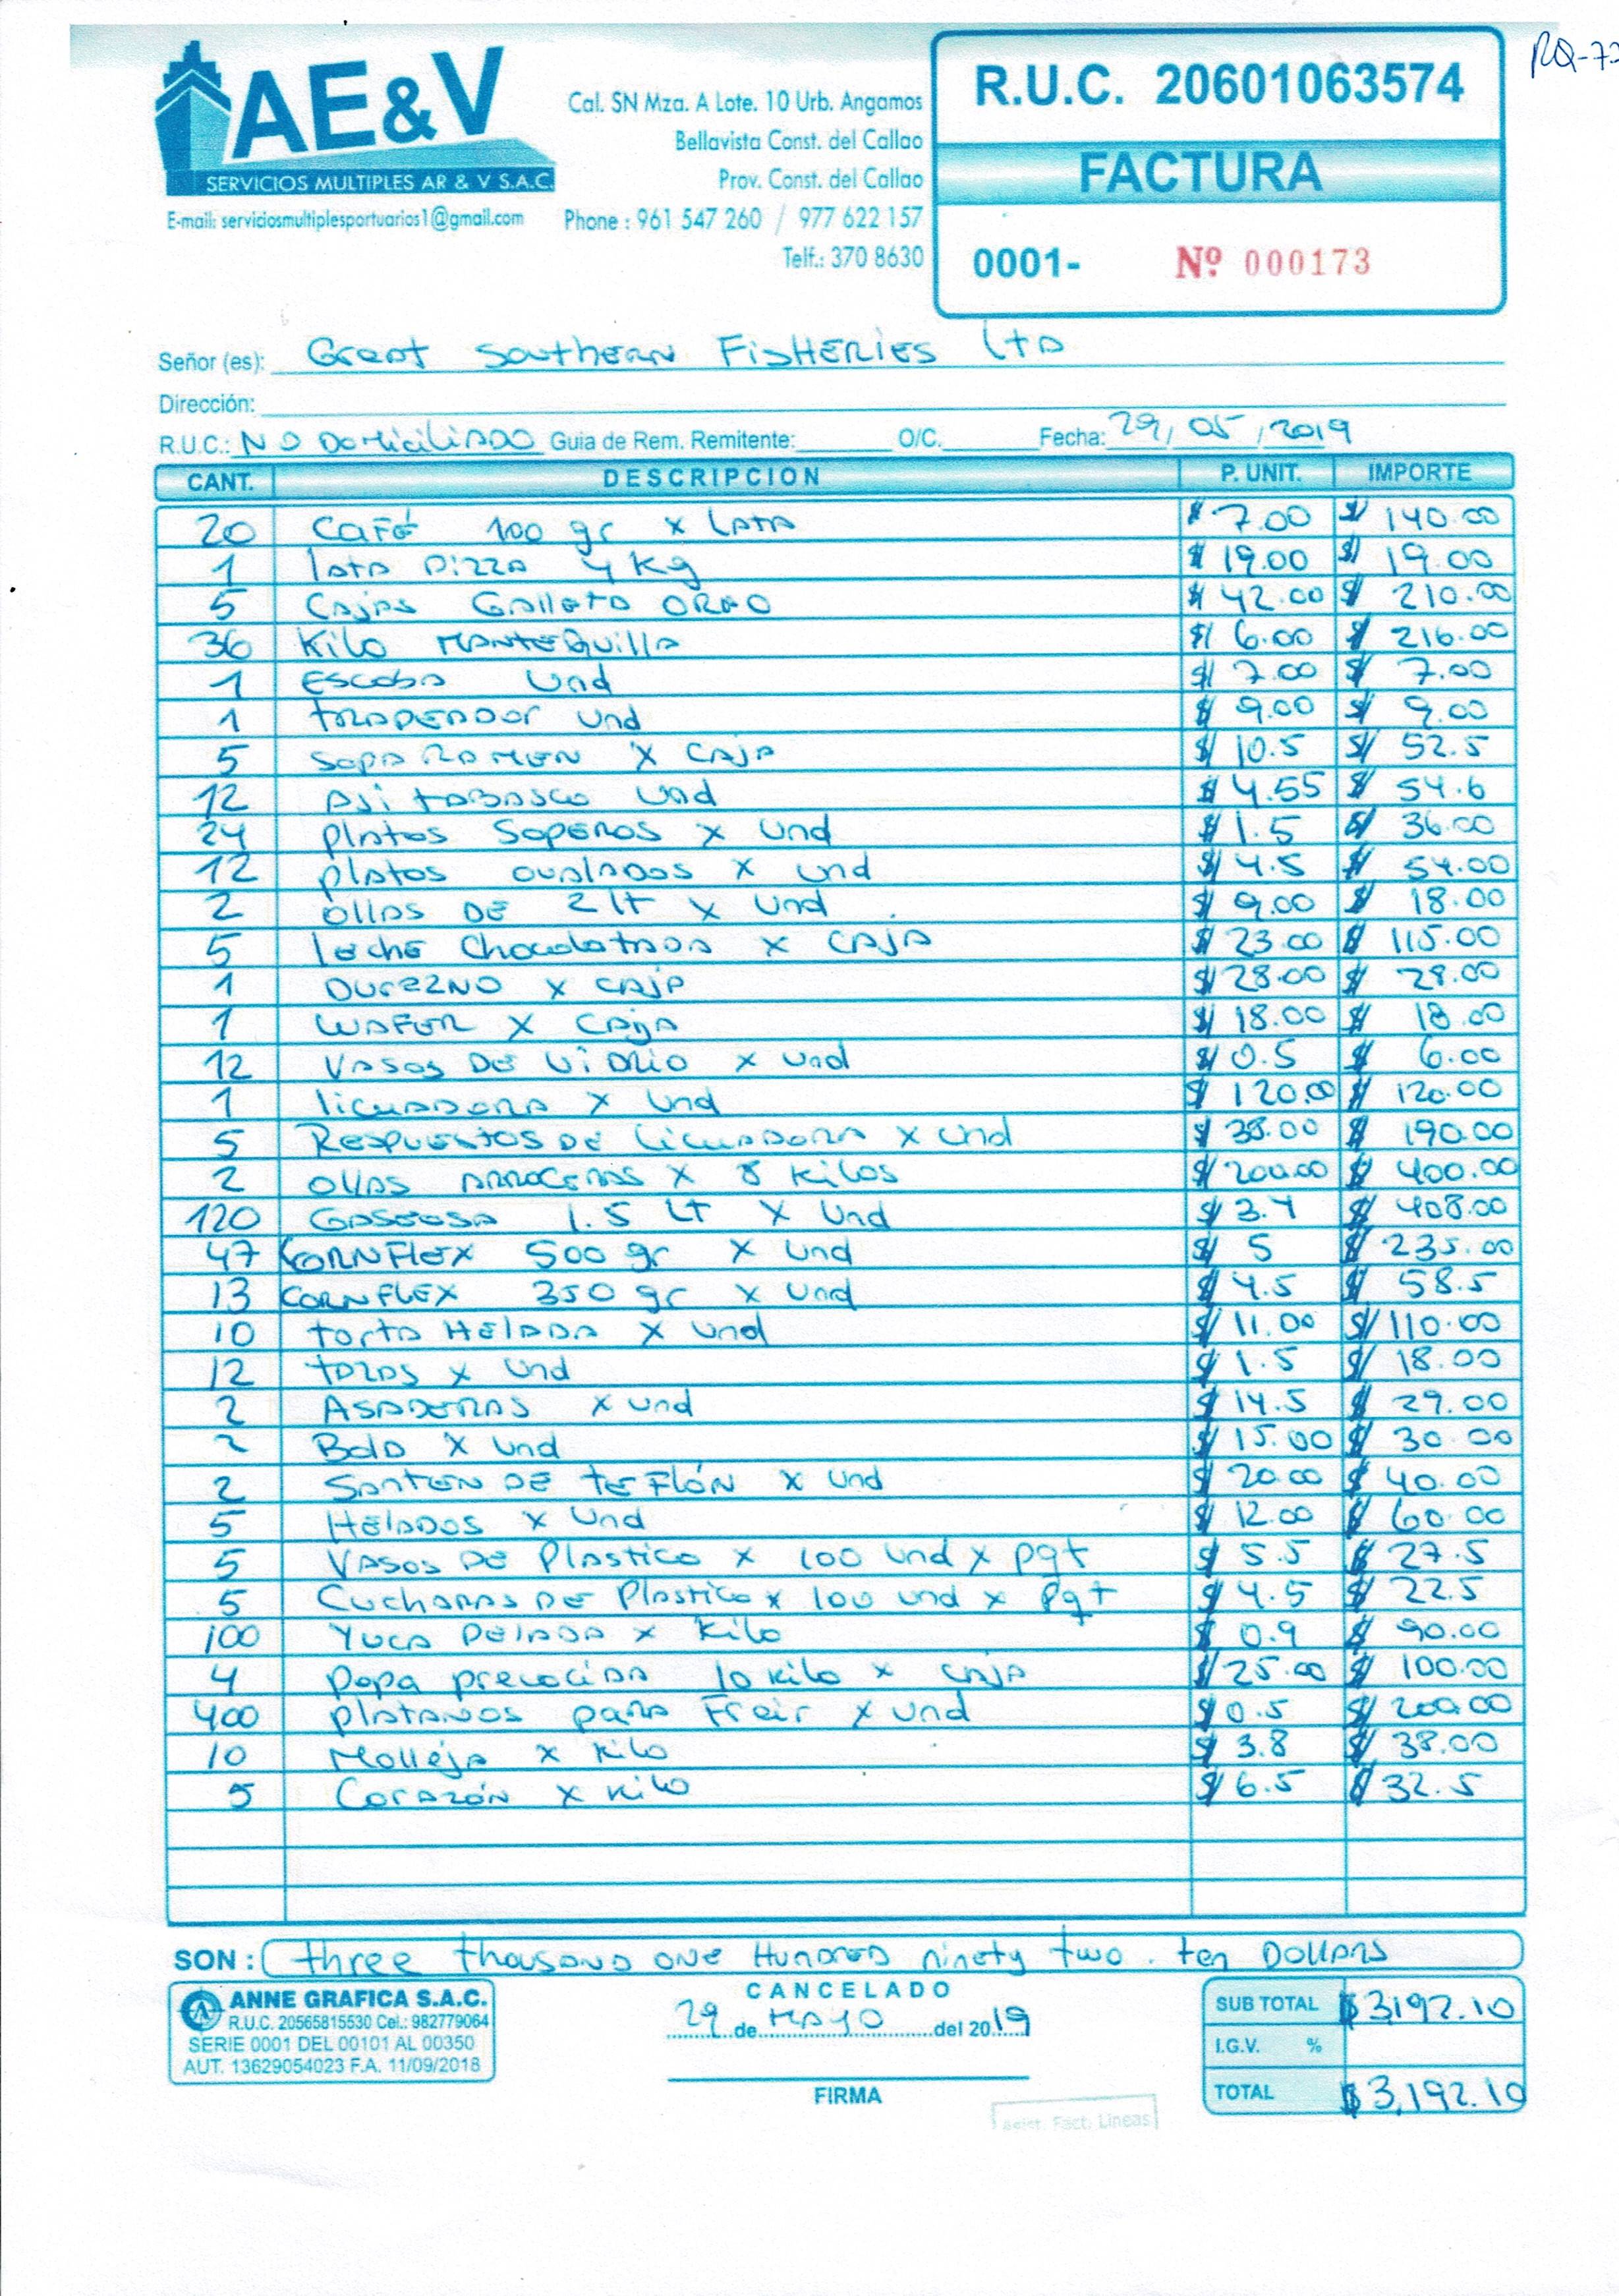 RQ-7
AE&V
SERVICIOS MULTIPLES AR & V S.A.C.
E-mail: serviciosmultiplesportuarios1@gmail.com
Cal. SN Mza. A Lote. 10 Urb. Angamos
Bellavista Const. del Callao
Prov. Const. del Callao
Phone : 961 547 260 / 977 622 157
Telf.: 370 8630
R.U.C. 20601063574
FACTURA
0001- Nº 000173
Señor (es): Great Southern FisHERies LTD
Dirección:
R.U.C.: NO DomiciliADO Guia de Rem. Remitente: O/C. Fecha: 29/05/2019
CANT. DESCRIPCION P. UNIT. IMPORTE
20 CAFÉ 100 gr x LATA $ 7.00 $ 140.00
1 lata pizza 4 Kg $ 19.00 $ 19.00
5 Cajas Galleta OREO $ 42.00 $ 210.00
36 Kilo MANTEQuilla $ 6.00 $ 216.00
1 Escoba Und $ 7.00 $ 7.00
1 trapeador und $ 9.00 $ 9.00
5 Sopa RAMEN X CAJA $ 10.5 $ 52.5
12 Aji tabasco und $ 4.55 $ 54.6
24 platos Soperos x und $ 1.5 $ 36.00
12 platos ovalados x und $ 4.5 $ 54.00
2 ollas DE 2 lt x Und $ 9.00 $ 18.00
5 leche Chocolatada x CAJA $ 23.00 $ 115.00
1 Durezno x CAJA $ 28.00 $ 28.00
1 WAFER X Caja $ 18.00 $ 18.00
12 Vasos DE Vidrio x und $ 0.5 $ 6.00
1 licuadora X Und $ 120.00 $ 120.00
5 Respuestos DE licuadora x und $ 38.00 $ 190.00
2 ollas arroceras x 8 kilos $ 200.00 $ 400.00
120 Gaseosa 1.5 LT X Und $ 3.4 $ 408.00
47 CORNFLEX 500 gr X Und $ 5 $ 235.00
13 CORNFLEX 350 gr x und $ 4.5 $ 58.5
10 torta Helada x und $ 11.00 $ 110.00
12 tazas x Und $ 1.5 $ 18.00
2 Asaderas x und $ 14.5 $ 29.00
2 Bold x und $ 15.00 $ 30.00
2 Santen DE teflón x und $ 20.00 $ 40.00
5 Helados x Und $ 12.00 $ 60.00
5 Vasos DE Plastico x 100 und x pqt $ 5.5 $ 27.5
5 Cucharas DE Plastico x 100 und x Pqt $ 4.5 $ 22.5
100 Yuca pelada x Kilo $ 0.9 $ 90.00
4 papa precocida 10 kilo x caja $ 25.00 $ 100.00
400 platanos para Freir x und $ 0.5 $ 200.00
10 Molleja x Kilo $ 3.8 $ 38.00
5 Corazón x Kilo $ 6.5 $ 32.5
SON : three thousand one Hundred ninety two . ten Dollars
ANNE GRAFICA S.A.C.
R.U.C. 20565815530 Cel.: 982779064
SERIE 0001 DEL 00101 AL 00350
AUT. 13629054023 F.A. 11/09/2018
CANCELADO
29 de MAYO del 2019
FIRMA
SUB TOTAL $ 3192.10
I.G.V. %
TOTAL $ 3,192.10
Asist. Fact. Lineas